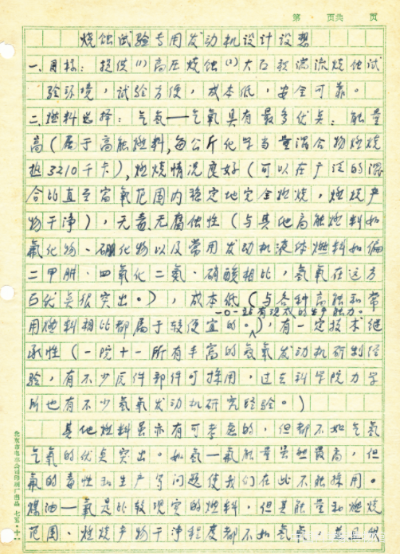 第 页共 页
烧蚀试验专用发动机设计设想
一.目标：提供(1)高压烧蚀(2)大面积湍流烧蚀试
验环境，试验方便，成本低，安全可靠。
二.燃料选择：气氢—气氧具有最多优点：能量
高（属于高能燃料，每公斤化学当量混合物燃烧
热3210千卡），燃烧情况良好（可以在广泛的混
合比直至富氧范围内稳定地完全燃烧，燃烧产
物干净），无毒无腐蚀性（与其他高能燃料如
氟化物、硼化物以及常用发动机液体燃料如偏
二甲肼、四氧化二氮、硝酸相比，氢氧在这方
面优点很突出。），成本低（与各种高能和常
一〇一站有现成的生产能力。
用燃料相比都属于较便宜的。），有一定技术继
承性（一院十一所有丰富的氢氧发动机研制经
验，有不少元件部件可採用，过去科学院力学
所也有不少氢氧发动机研究经验。）
其他燃料虽亦有可考虑的，但都不如气氢
气氧的优点突出。如氢—氟能量虽然最高，但
氟的毒性和生产等问题使我们在此不能採用。
煤油—氧是比较现实的燃料，但其能量和燃烧
范围、燃烧产物干净程度都不如氢氧